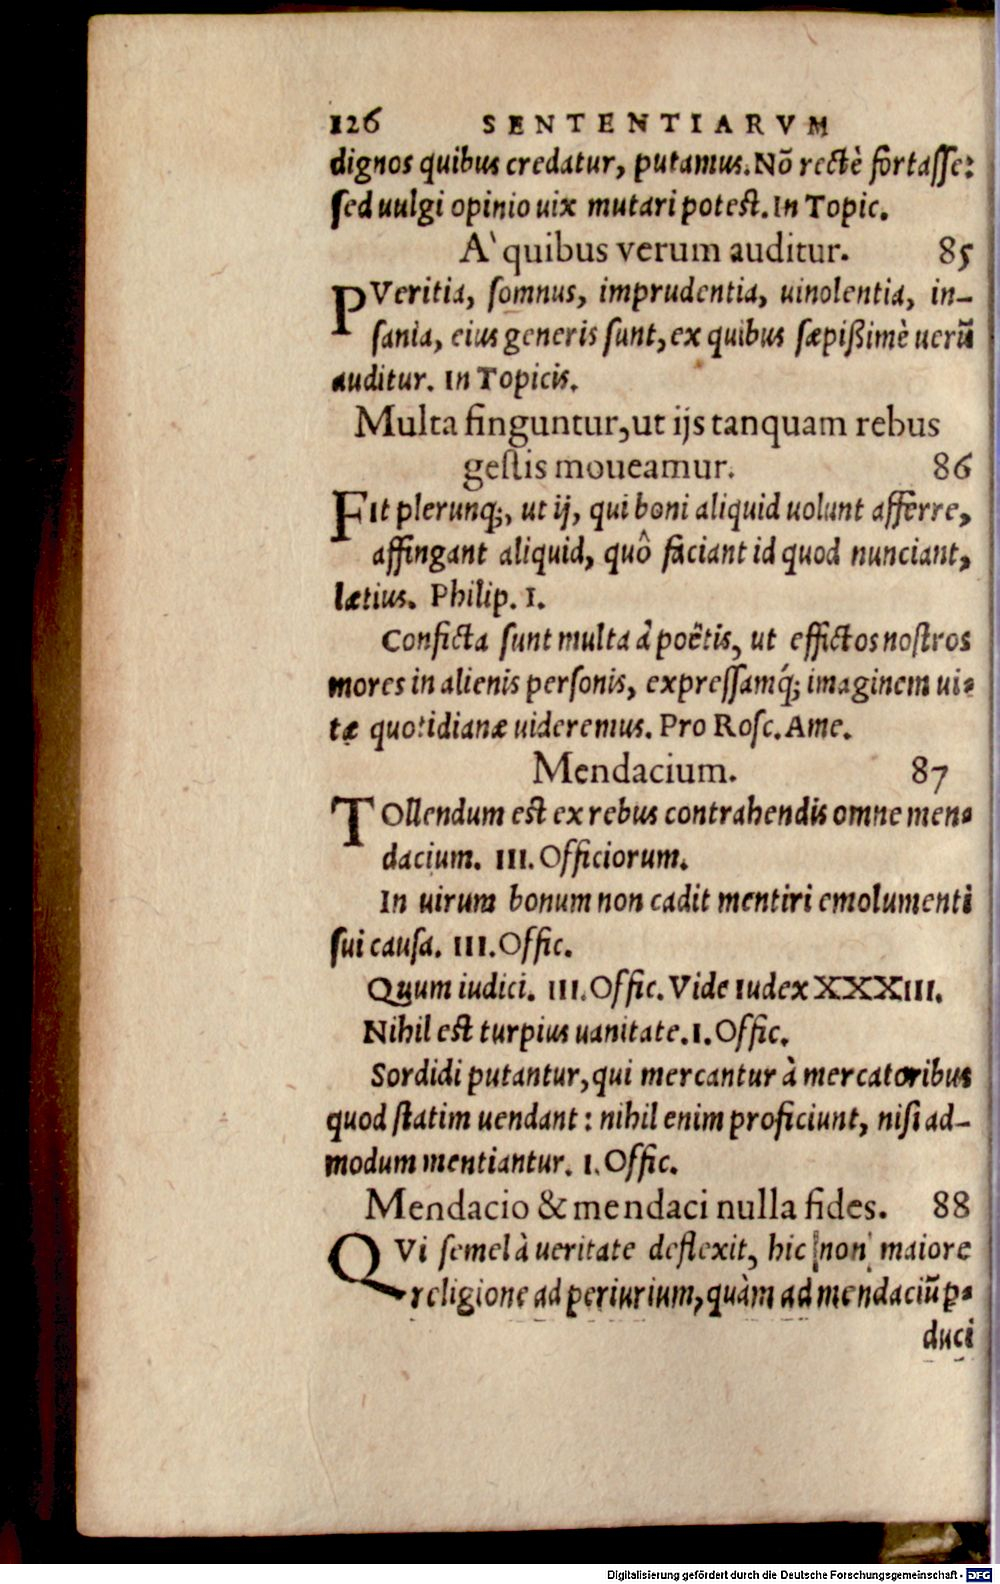 126 SENTENTIARVM
dignos quibus credatur, putamus. Nõ rectè fortasse:
sed uulgi opinio uix mutari potest. In Topic.
A` quibus verum auditur. 85
PVeritia, somnus, imprudentia, uinolentia, in-
sania, eius generis sunt, ex quibus sæpißimè uerũ
auditur. In Topicis.
Multa finguntur, ut ijs tanquam rebus
gestis moueamur. 86
Fit plerunq;, ut ij, qui boni aliquid uolunt afferre,
affingant aliquid, quô faciant id quod nunciant,
lætius. Philip. I.
Conficta sunt multa à poëtis, ut effictos nostros
mores in alienis personis, expressamq́; imaginem ui-
tæ quotidianæ uideremus. Pro Rosc. Ame.
Mendacium. 87
TOllendum est ex rebus contrahendis omne men-
dacium. III. Officiorum.
In uirum bonum non cadit mentiri emolumenti
sui causa. III. Offic.
Quum iudici. III. Offic. Vide Iudex XXXIII.
Nihil est turpius uanitate. I. Offic.
Sordidi putantur, qui mercantur à mercatoribus
quod statim uendant: nihil enim proficiunt, nisi ad-
modum mentiantur. I. Offic.
Mendacio & mendaci nulla fides. 88
QVi semel à ueritate deflexit, hic non maiore
religione ad periurium, quàm ad mendaciũ p-
duci
Digitalisierung gefördert durch die Deutsche Forschungsgemeinschaft - DFG